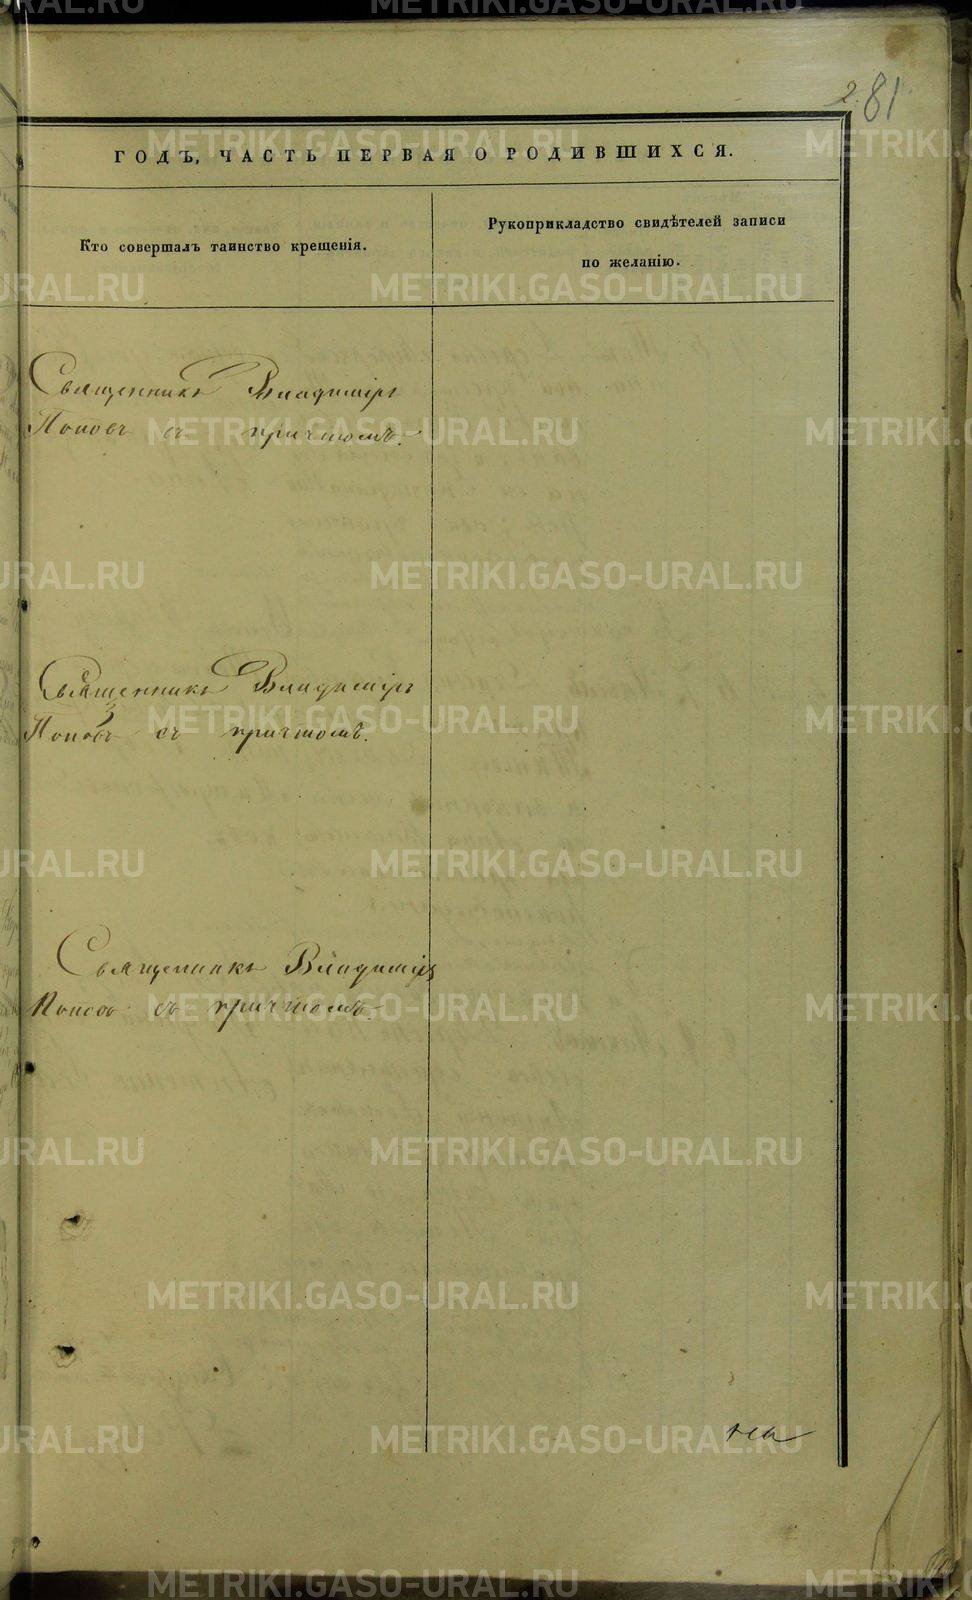 2.
81
ГОДЪ, ЧАСТЬ ПЕРВАЯ О РОДИВШИХСЯ.
Кто совершалъ таинство крещенія.
Рукоприкладство свидѣтелей записи
по желанію.
Священникъ Владимiръ
Поповъ съ причтомъ.
Священникъ Владимiръ
Поповъ съ причтомъ.
Священникъ Владимiръ
Поповъ съ причтомъ.
METRIKI.GASO-URAL.RU